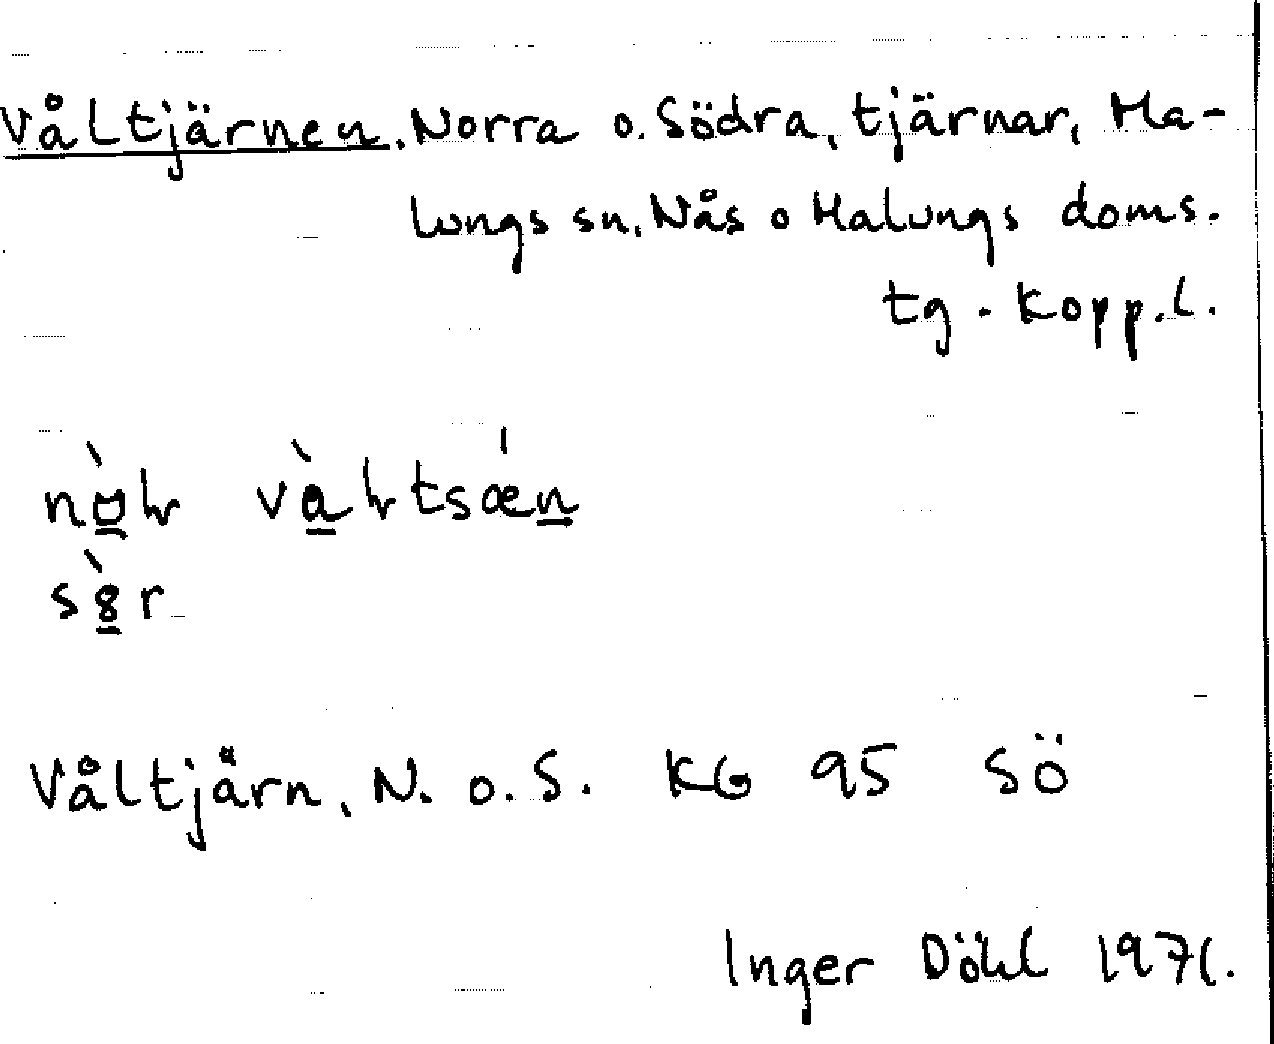 Våltjärnen, Norra o. Södra, tjärnar, Ma-
lungs sn, Nås o Malungs doms.
tg. Kopp.l.
Våltjärn, N. o. S. KG 95 Sö
Inger Döhl 1971.